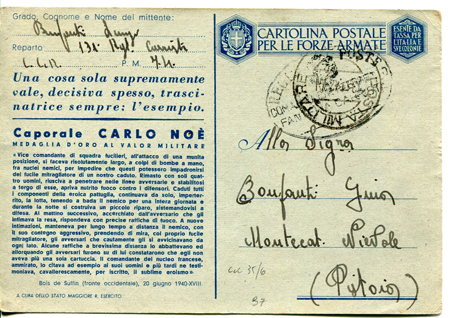 Grado, Cognome e Nome del mittente:
Bonfanti
Reparto 131 Regt. Carristi
P. M. 74
Una cosa sola supremamente
vale, decisiva spesso, trasci-
natrice sempre: l'esempio.
Caporale CARLO NOÈ
MEDAGLIA D'ORO AL VALOR MILITARE
«Vice comandante di squadra fucilieri, all'attacco di una munita
posizione, si faceva risolutamente largo, a colpi di bombe a mano,
tra nuclei nemici, per impedire che questi potessero impadronirsi
del fucile mitragliatore di un nostro caduto. Rimasto con soli quattro
uomini, riusciva a penetrare nelle linee avversarie e sbalorditosi
a tergo di esse, apriva nutrito fuoco contro i difensori. Caduti tutti
i componenti della eroica pattuglia, continuava da solo, imperter-
rito, la lotta, tenendo a bada il nemico per una intera giornata e
durante la notte si costruiva un piccolo riparo, sistemandosi a
difesa. Al mattino successivo, accerchiato dall'avversario che gli
intimava la resa, rispondeva con precise raffiche di fuoco. A nuove
intimazioni, manteneva per lungo tempo a distanza il nemico, con
un contegno aggressivo, prendendo di mira, col proprio fucile
mitragliatore, gli avversari che cautamente gli si avvicinavano da
ogni lato. Alcune raffiche a brevissima distanza lo abbattevano ed
allorquando gli avversari furono su di lui constatarono che egli non
aveva più una sola cartuccia. Il comandante del nucleo francese,
ammirato, lo citava ad esempio ai suoi uomini e più tardi ne testi-
moniava, cavallerescamente, per iscritto, il sublime eroismo»
Bois de Suffin (fronte occidentale), 20 giugno 1940-XVIII
A CURA DELLO STATO MAGGIORE R. ESERCITO
CARTOLINA POSTALE
PER LE FORZE ARMATE
ESENTE DA
TASSA PER
L'ITALIA E
SVE COLONIE
POSTA MILITARE
Alla Sigra
Bonfanti
Montecat.
(Pistoia)